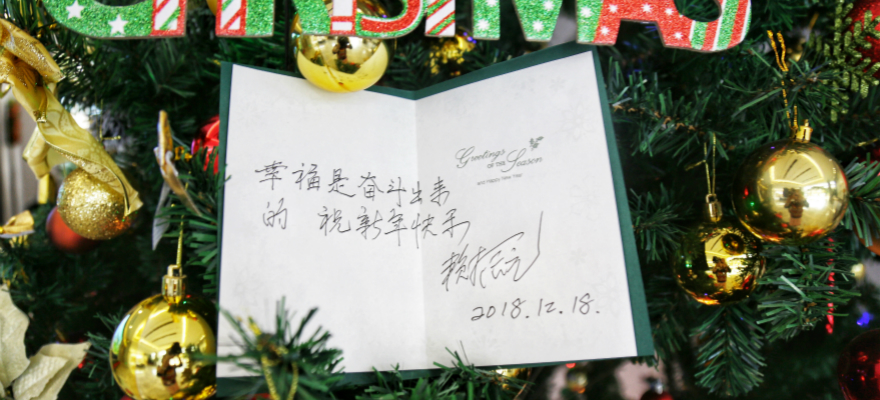 CHRISTMAS
Greetings
OF THE Season
and Happy New Year
幸福是奋斗出来
的 祝新年快乐
2018.12.18.